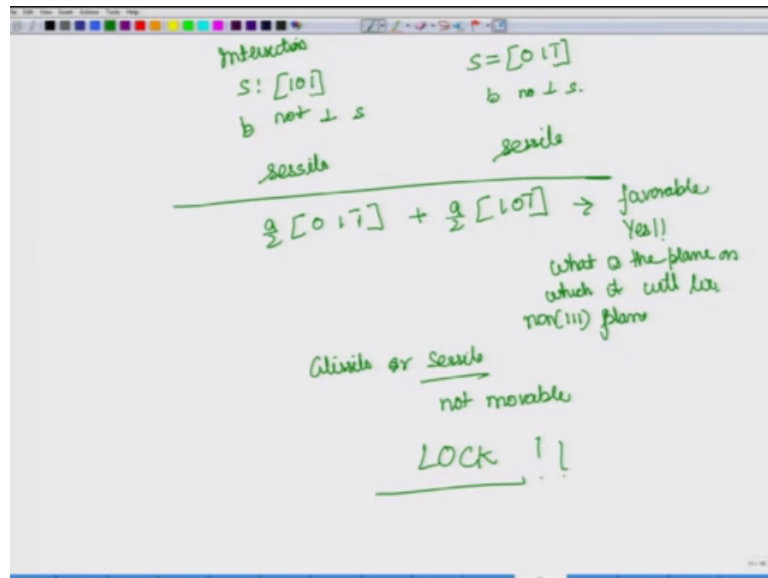 Intersection
S: [10ī]
b not ⊥ s
sessile
S = [01ī]
b no ⊥ s.
sessile
a/2 [01ī] + a/2 [10ī] → favorable
Yes!!
what is the plane on
which it will lie,
non(111) plane
Glissile or Sessile
not movable
LOCK !!